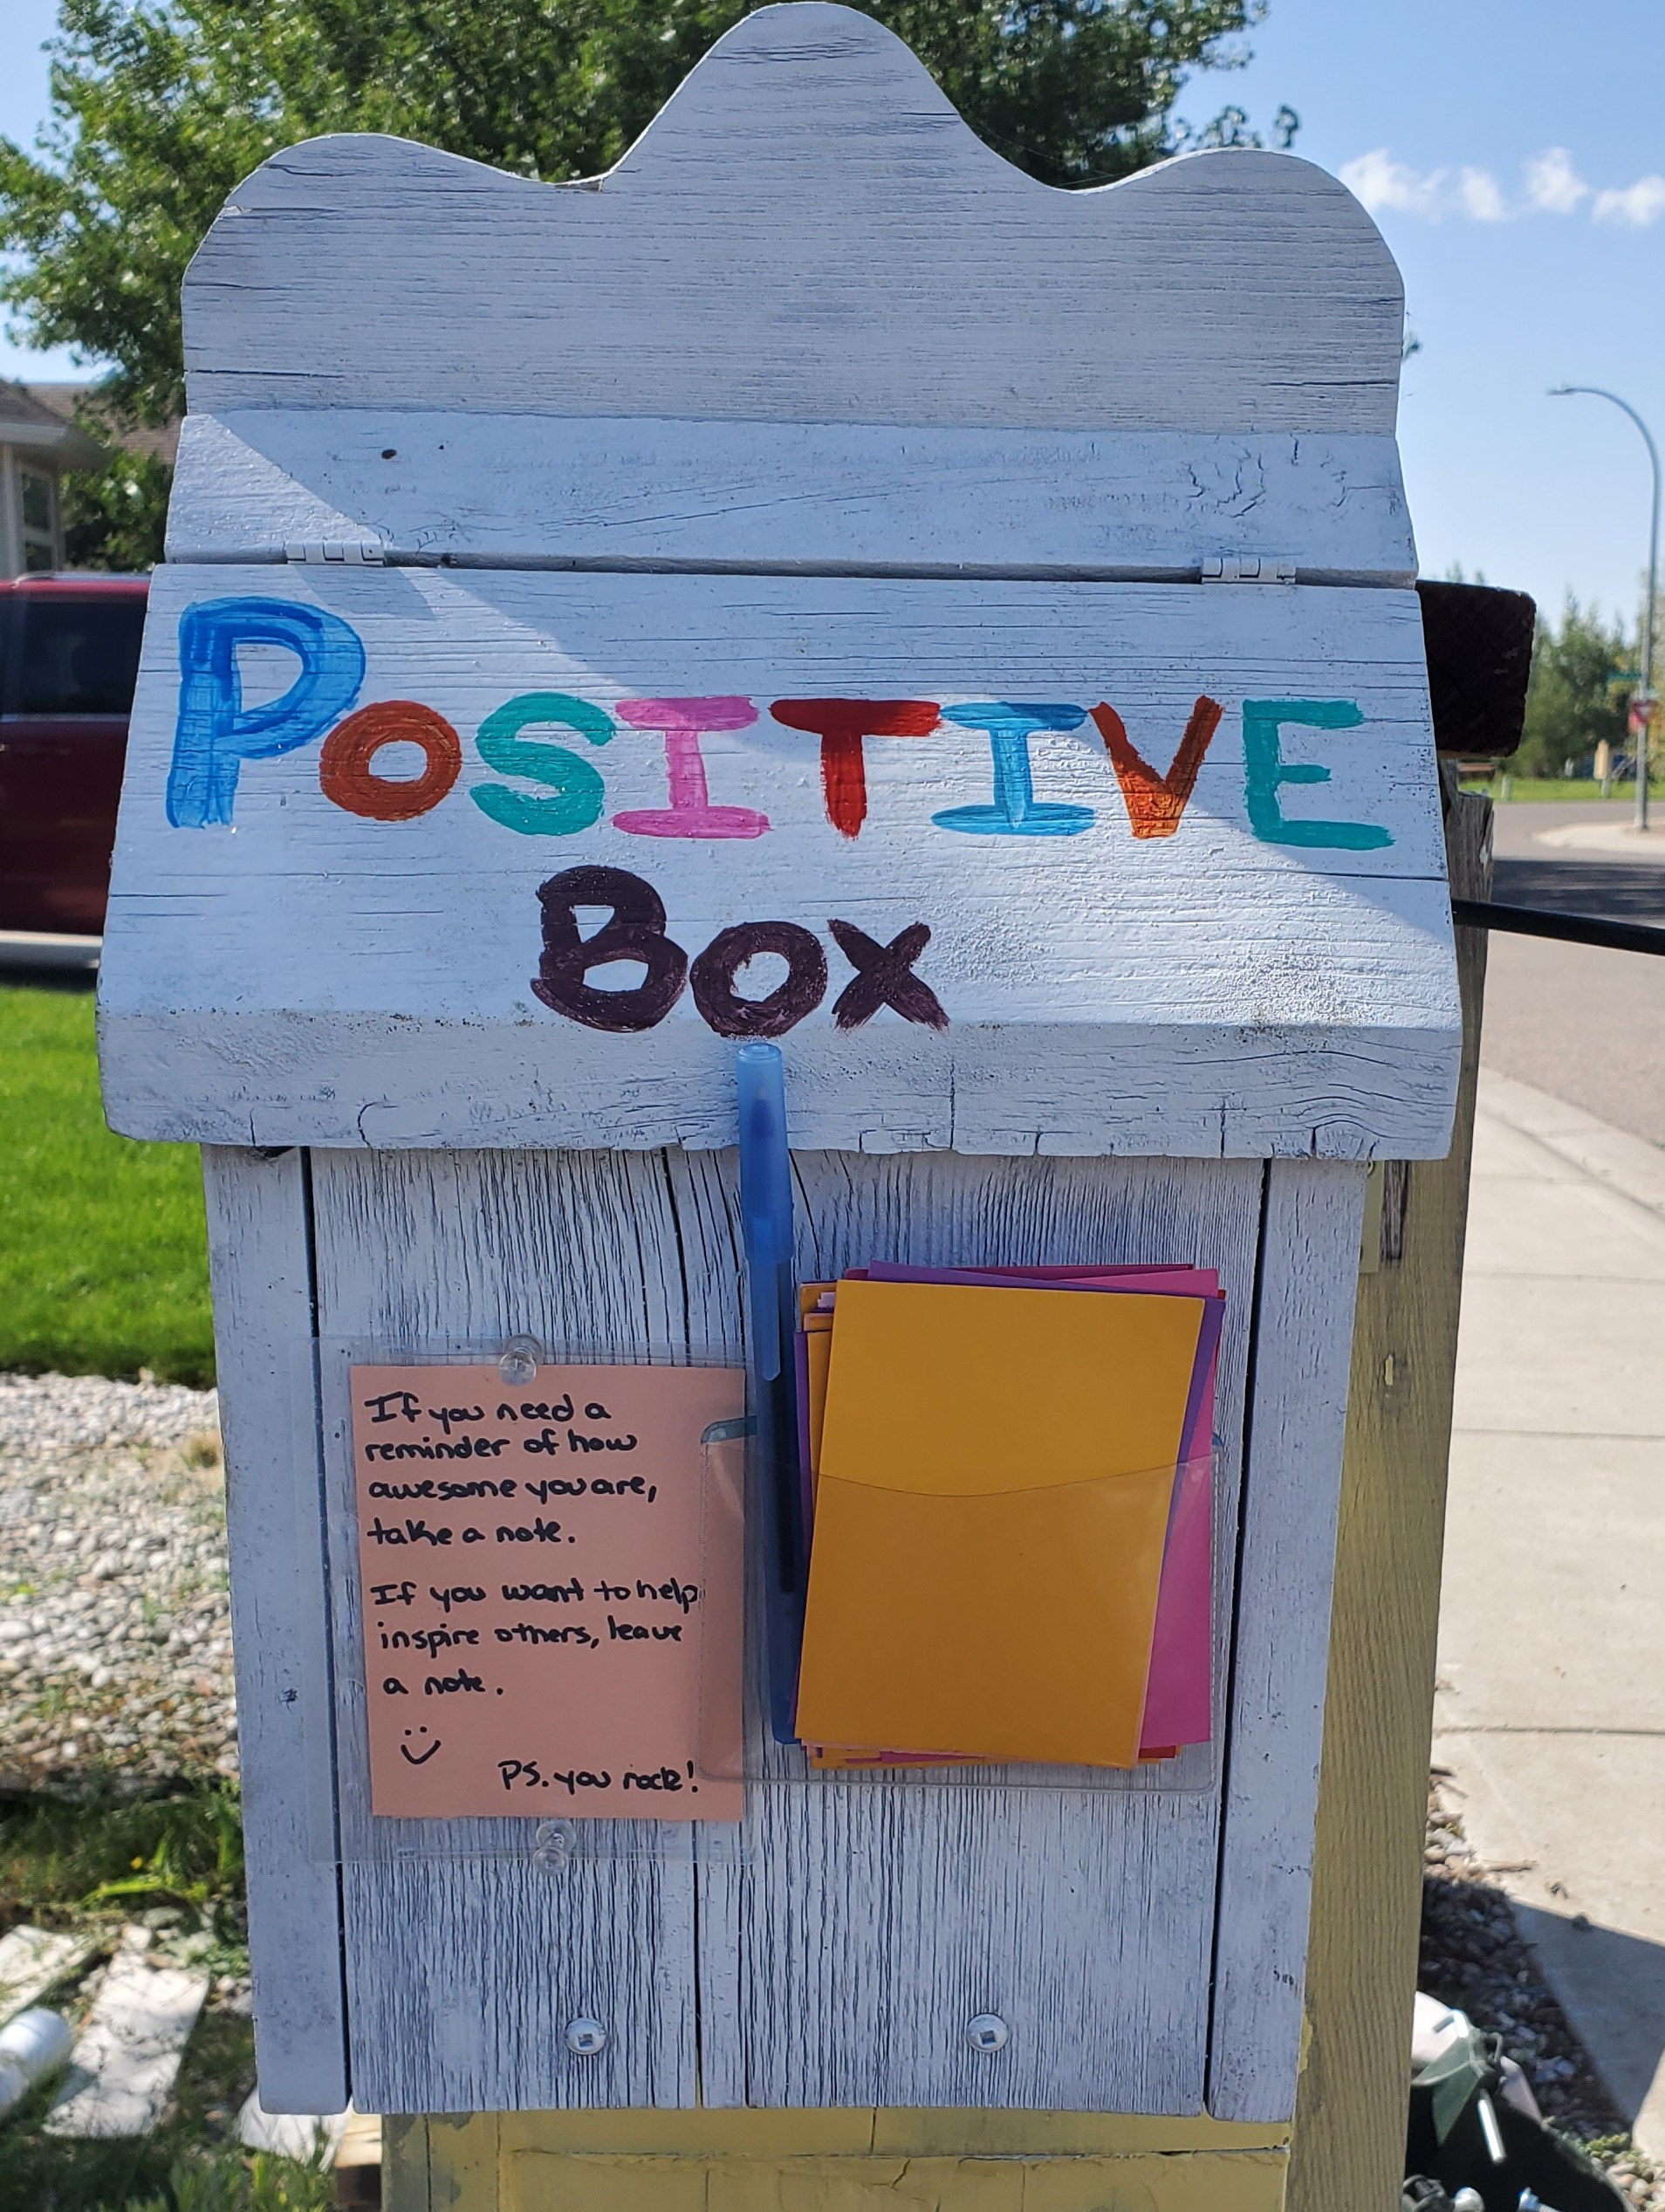 POSITIVE
BOX
If you need a
reminder of how
awesome you are,
take a note.
If you want to help
inspire others, leave
a note.
PS. you rock!